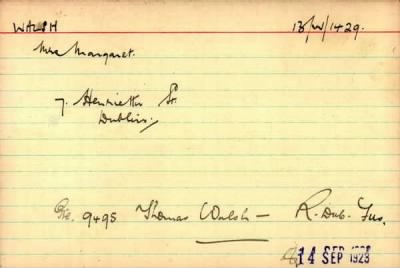 WALSH 13/W/1429.
Mrs Margaret.
7. Henrietta St.
Dublin.
Pte. 9495 Thomas Walsh — R. Dub. Fus.
14 SEP 1923